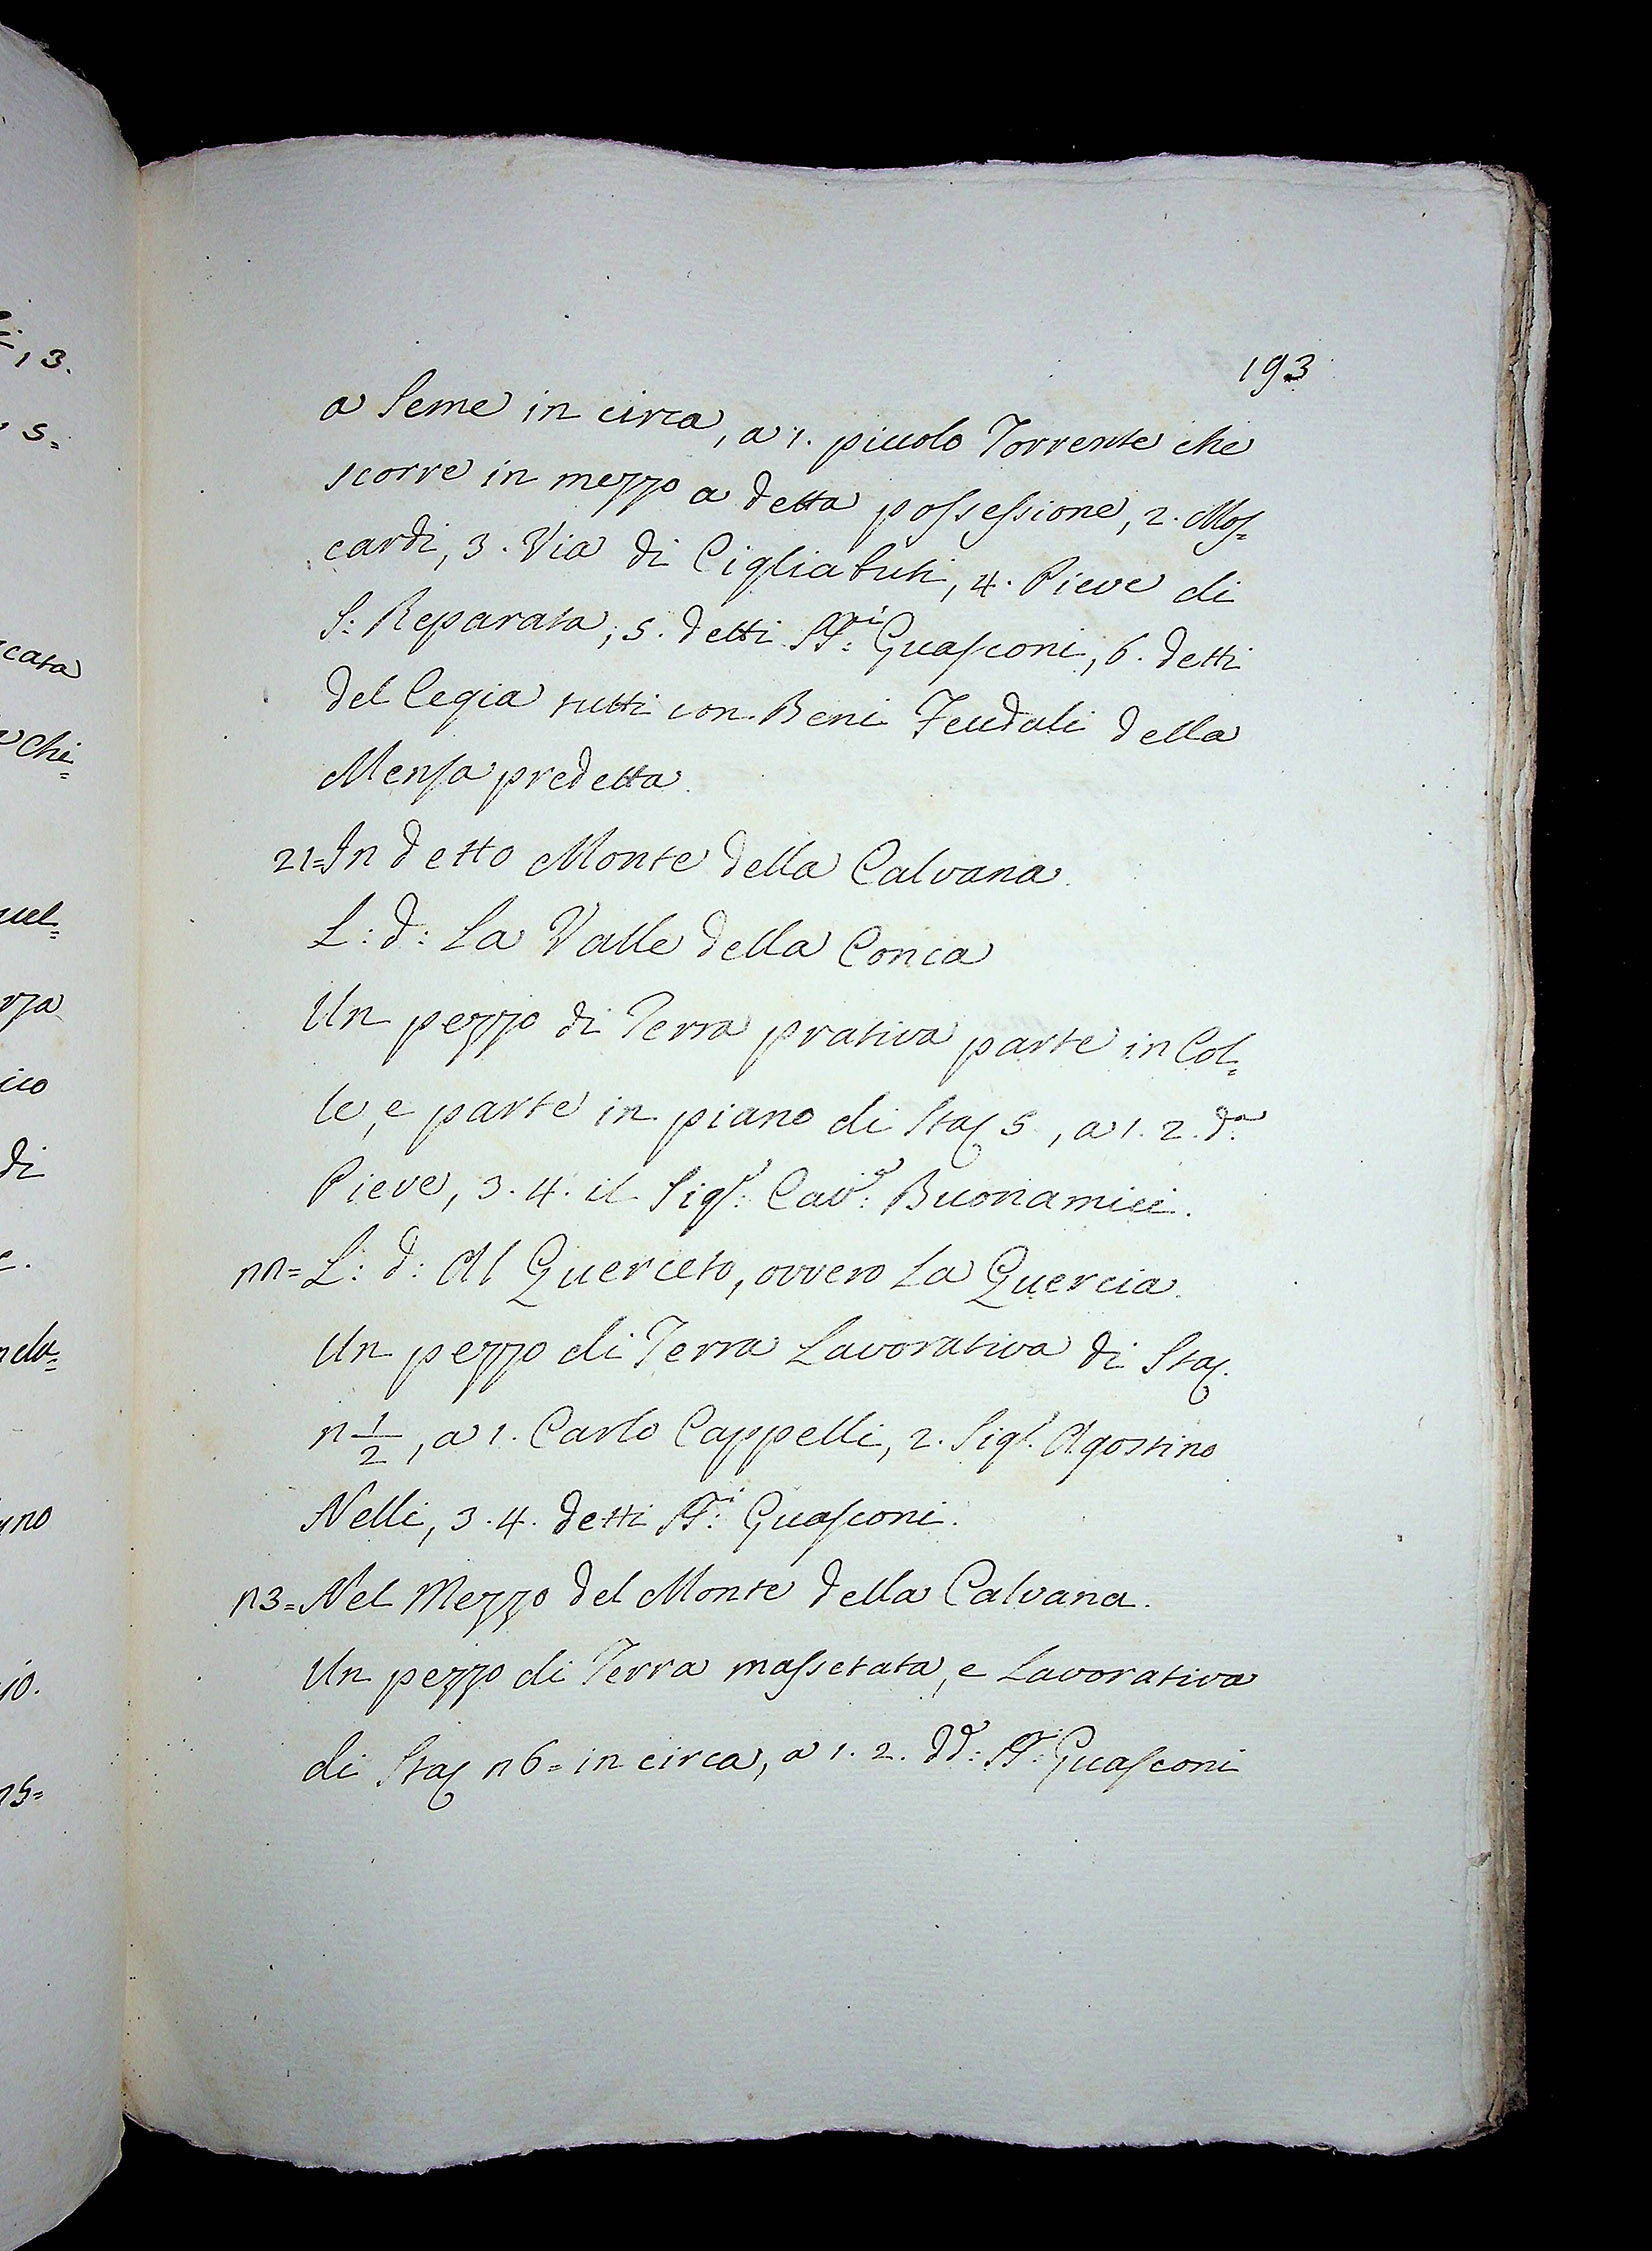 193
a Seme in circa, a 1. piccolo Torrente che
scorre in mezzo a detta possessione, 2. Mos=
cardi, 3. Via di Cigliabuti, 4. Pieve di
S: Reparata, 5. detti SS:ri Guasconi, 6. detti
del Cegia tutti con Beni Feudali della
Mensa predetta.
21= In detto Monte della Calvana.
L: d: La Valle della Conca
Un pezzo di Terra prativa parte in Col=
le, e parte in piano di Sta 5, a 1. 2. d:a
Pieve, 3. 4. il Sig:r Cav:r Buonamici.
22= L: d: Al Querceto, ovvero La Quercia.
Un pezzo di Terra Lavorativa di Sta.
2 1/2, a 1. Carlo Cappelli, 2. Sig:r Agostino
Nelli, 3. 4. detti SS:i Guasconi.
23= Nel Mezzo del Monte della Calvana.
Un pezzo di Terra massetata, e Lavorativa
di Sta 26= in circa, a 1. 2. dd: SS:ri Guasconi
, 3.
5=
cata
Chi=
uel=
rza
ico
di
no
10.
25=